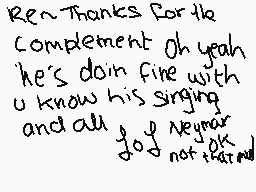 Ren Thanks for the
complement Oh yeah
he's doin fine with
u know his singing
and all lol Neymar
OK
not that